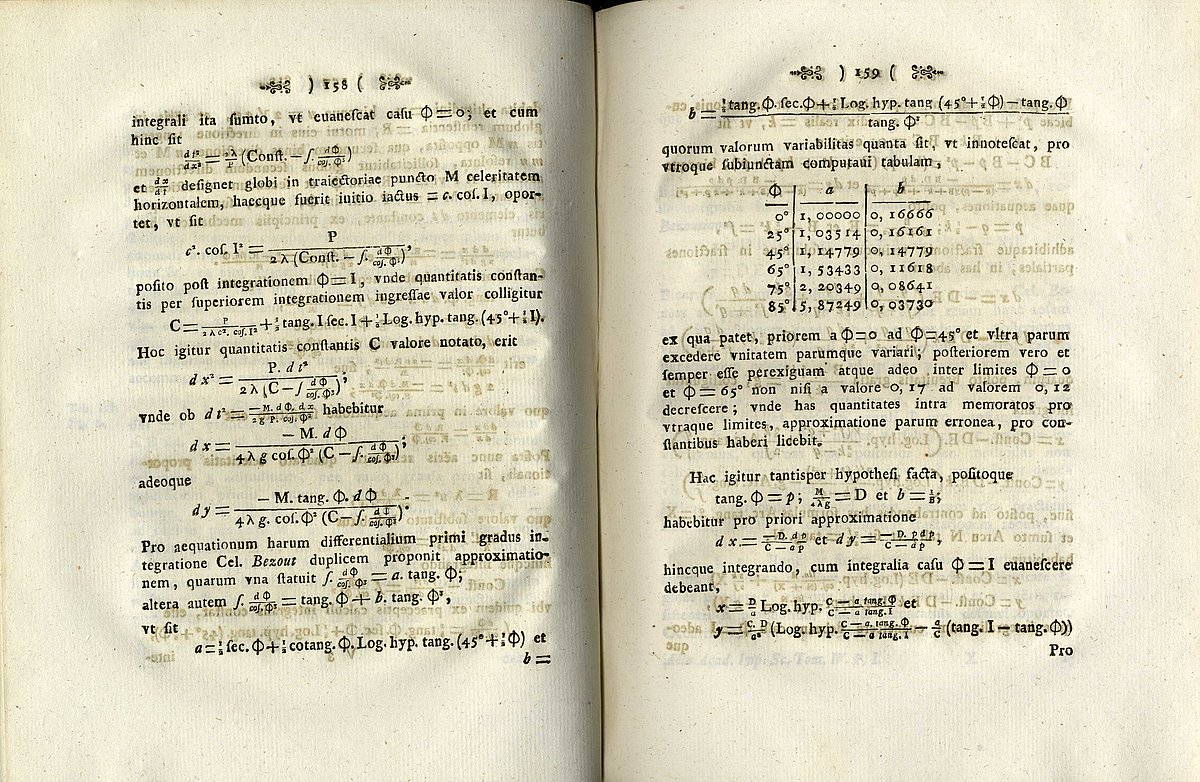 ) 158 (
integrali ita sumto, vt euanescat casu Φ=0; et cum
hinc sit
dt²/dx² = 2λ/P (Const. − ∫. dΦ/cos. Φ³)
et dx/dt designet globi in traiectoriae puncto M celeritatem
horizontalem, haecque fuerit initio iactus = c. cos. I, opor-
tet, vt sit
c². cos. I² = P/2λ (Const. − ∫. dΦ/cos. Φ³),
posito post integrationem Φ=I, vnde quantitatis constan-
tis per superiorem integrationem ingressae valor colligitur
C = P/2λc². cos. I² + ½ tang. I sec. I + ½ Log. hyp. tang. (45° + ½ I).
Hoc igitur quantitatis constantis C valore notato, erit
dx² = P. dt²/2λ (C − ∫. dΦ/cos. Φ³);
vnde ob dt² = − M. dΦ. dx/2g P. cos. Φ² habebitur
dx = − M. dΦ/4λg cos. Φ² (C − ∫. dΦ/cos. Φ³);
adeoque
dy = − M. tang. Φ. dΦ/4λg. cos. Φ² (C − ∫. dΦ/cos. Φ³).
Pro aequationum harum differentialium primi gradus in-
tegratione Cel. Bezout duplicem proponit approximatio-
nem, quarum vna statuit ∫. dΦ/cos. Φ³ = a. tang. Φ;
altera autem ∫. dΦ/cos. Φ³ = tang. Φ + b. tang. Φ³,
vt sit
a = ½ sec. Φ + ½ cotang. Φ, Log. hyp. tang. (45° + ½ Φ) et
b =
) 159 (
b = ½ tang. Φ. sec. Φ + ½ Log. hyp. tang (45° + ½ Φ) − tang. Φ/tang. Φ³
quorum valorum variabilitas quanta sit, vt innotescat, pro
vtroque subiunctam computaui tabulam,
Φ | a | b
0° | 1, 00000 | 0, 16666
25° | 1, 03514 | 0, 16161
45° | 1, 14779 | 0, 14779
65° | 1, 53433 | 0, 11618
75° | 2, 20349 | 0, 08641
85° | 5, 87249 | 0, 03730
ex qua patet, priorem a Φ=0 ad Φ=45° et vltra parum
excedere vnitatem parumque variari; posteriorem vero et
semper esse perexiguam atque adeo inter limites Φ=0
et Φ=65° non nisi a valore 0, 17 ad valorem 0, 12
decrescere; vnde has quantitates intra memoratos pro
vtraque limites, approximatione parum erronea, pro con-
stantibus haberi licebit.
Hac igitur tantisper hypothesi facta, positoque
tang. Φ = p; M/4λg = D et b = 1/B;
habebitur pro priori approximatione
dx = − D. dp/C − ap et dy = − D. p dp/C − ap,
hincque integrando, cum integralia casu Φ=I euanescere
debeant,
x = D/a Log. hyp. C − a tang. Φ/C − a tang. I et
y = C. D/a² (Log. hyp. C − a. tang. Φ/C − a tang. I − a/C (tang. I − tang. Φ))
Pro